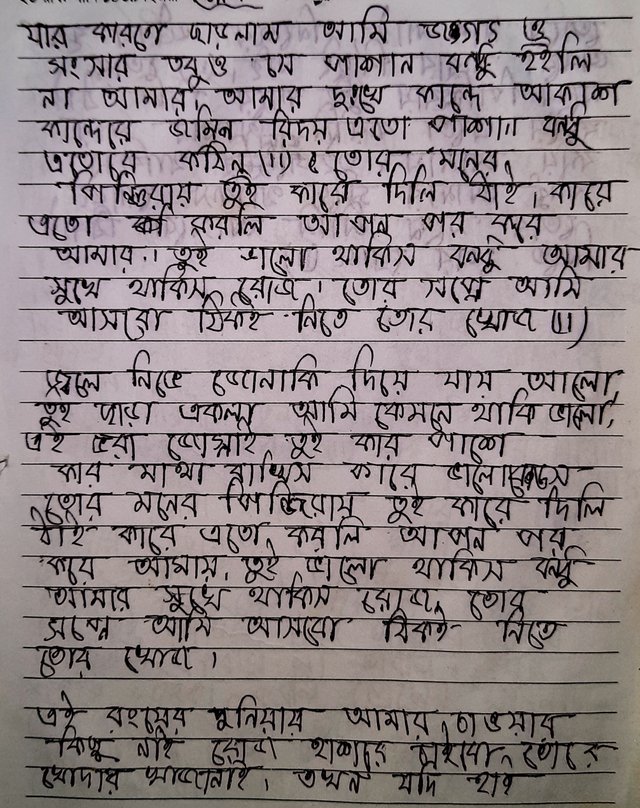 যার কারণে ছাড়লাম আমি জগত ও
সংসার তবুও সে পাশান বন্ধু হইলি
না আমার, আমার দুঃখে কান্দে আকাশ
কান্দেরে জমিন রিদয় এতো পাশান বন্ধু
এতোরে কঠিন (।।) তোর মনের
পিঞ্জিরায় তুই কারে দিলি ঠাই কারে
এতো করলি আপন পর করে
আমার।। তুই ভালো থাকিস বন্ধু আমার
সুখে থাকিস রোজ। তোর সপ্নে আমি
আসবো ঠিকই নিতে তোর খোজ (।।)
জলে নিভে জোনাকি দিয়ে যায় আলো,
তুই ছাড়া একলা আমি কেমনে থাকি ভালো,
এই ভরা জোসনাই তুই কার পাশে
কার মাথা রাখিস কারে ভালোবেসে
তোর মনের পিঞ্জিরায় তুই কারে দিলি
ঠাই কারে এতো করলি আপন পর
করে আমায়, তুই ভালো থাকিস বন্ধু
আমার সুখে থাকিস রোজ, তোর
সপ্নে আমি আসবো ঠিকই নিতে
তোর খোজ।
এই রংয়ের দুনিয়ায় আমার চাওয়ার
কিছু নাই রোজ হাশরে চাইবো তোরে
খোদার তখন যদি হায়